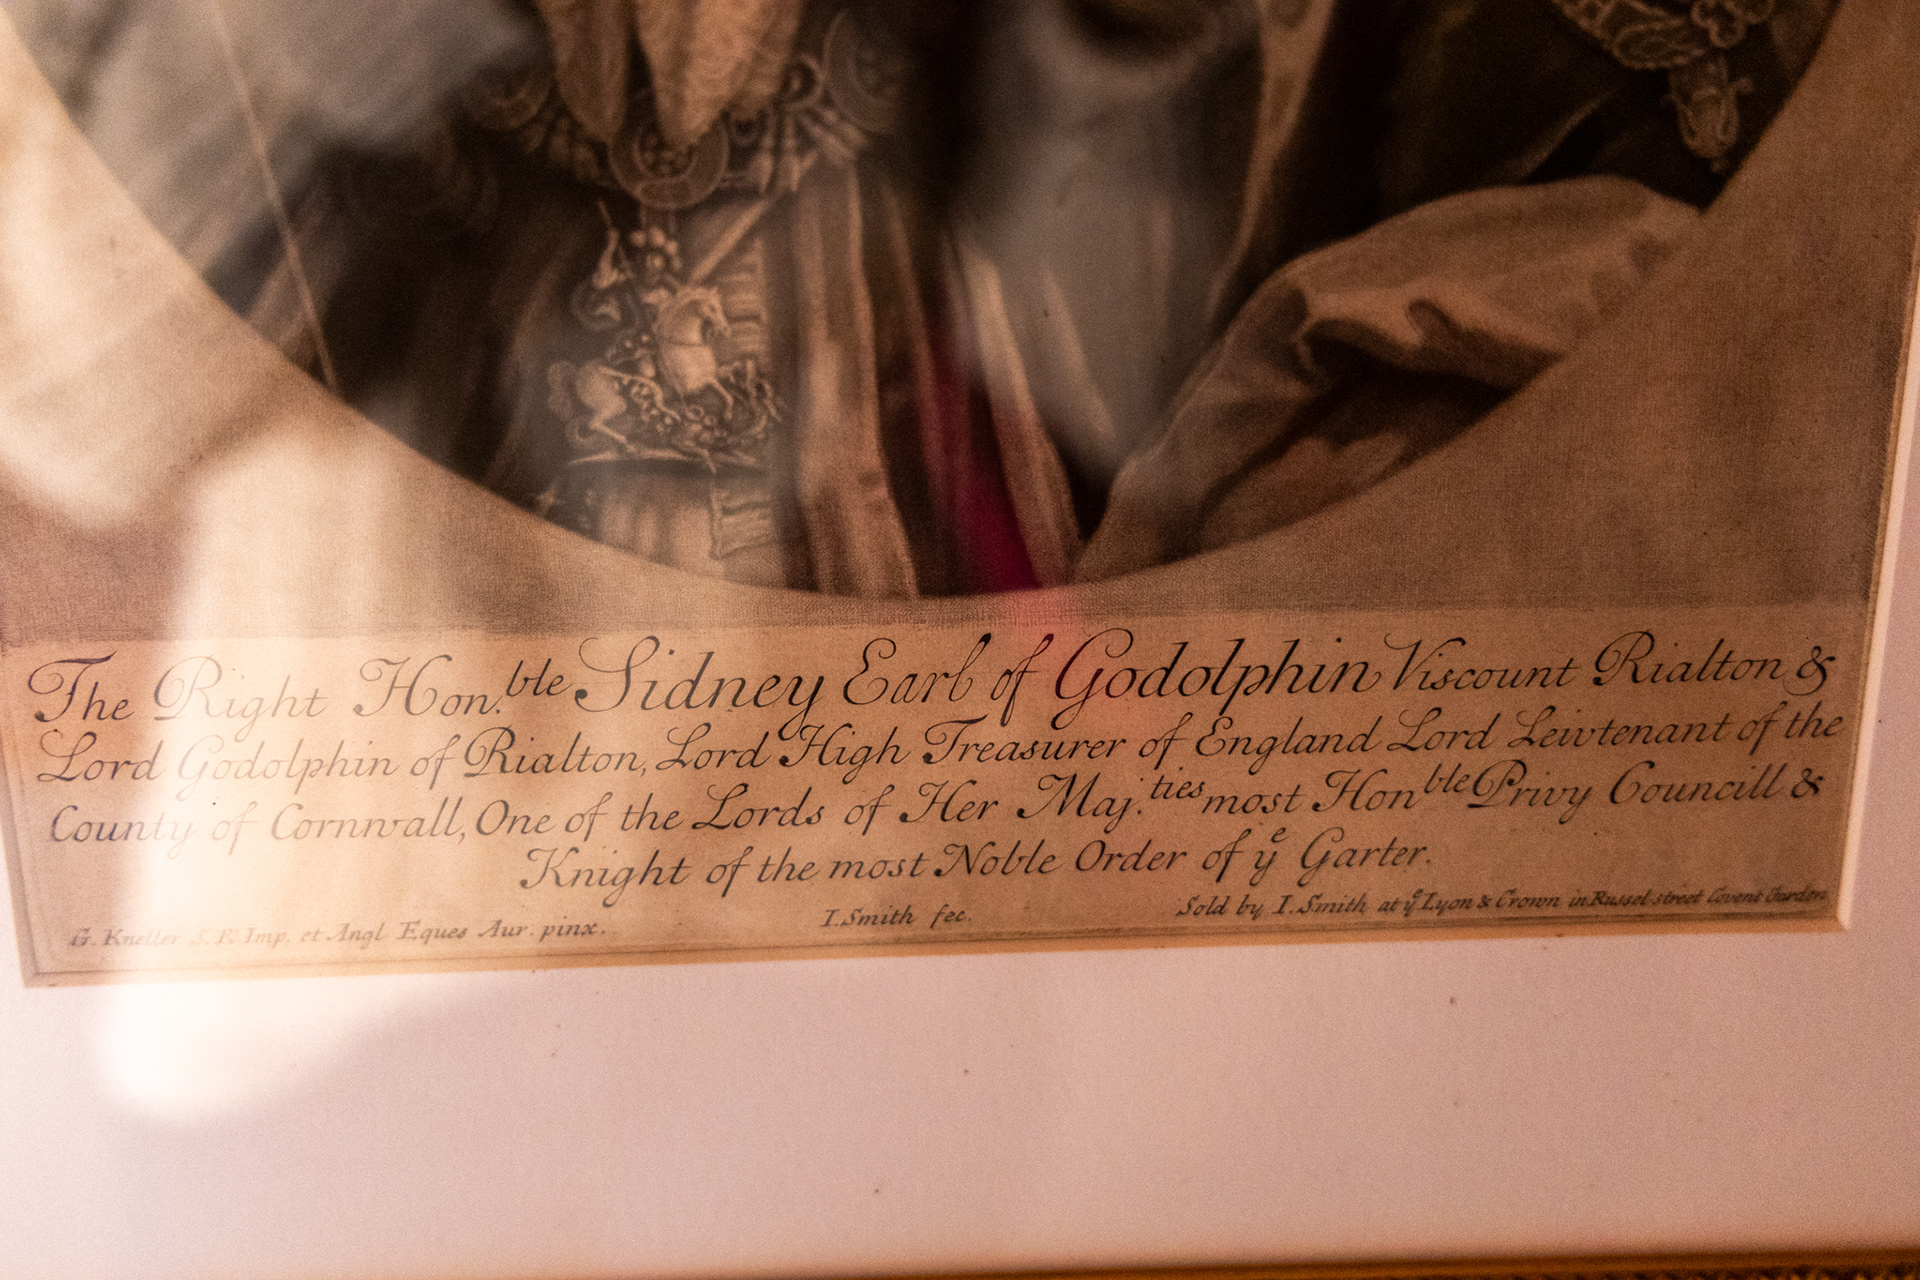 The Right Hon.ble Sidney Earl of Godolphin Viscount Rialton &
Lord Godolphin of Rialton, Lord High Treasurer of England Lord Leivtenant of the
County of Cornwall, One of the Lords of Her Maj.ties most Honble Privy Councill &
Knight of the most Noble Order of ye Garter.
G. Kneller S. R. Imp. et Angl Eques Aur. pinx. I. Smith fec. Sold by I. Smith at ye Lyon & Crown in Russel street Covent Garden